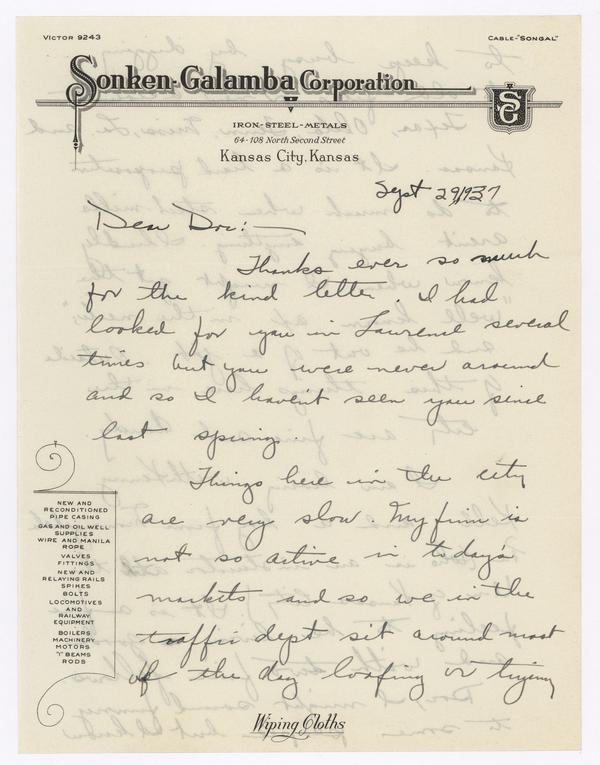 VICTOR 9243
CABLE-"SONGAL"
Sonken-Galamba Corporation
SG
IRON-STEEL-METALS
64-108 North Second Street
Kansas City, Kansas
Sept 29, 1937
Dear Doc:-
Thanks ever so much
for the kind letter. I had
looked for you in Lawrence several
times but you were never around
and so I haven't seen you since
last spring.
Things here in the city
are very slow. My firm is
not so active in todays
markets and so we in the
traffic dept sit around most
of the day loafing or trying
NEW AND
RECONDITIONED
PIPE CASING
GAS AND OIL WELL
SUPPLIES
WIRE AND MANILA
ROPE
VALVES
FITTINGS
NEW AND
RELAYING RAILS
SPIKES
BOLTS
LOCOMOTIVES
AND
RAILWAY
EQUIPMENT
BOILERS
MACHINERY
MOTORS
"I" BEAMS
RODS
Wiping Cloths